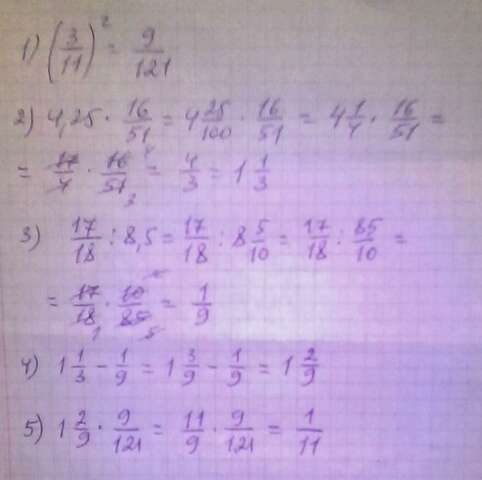 1) (3/11)² = 9/121
2) 4,25 · 16/51 = 4 25/100 · 16/51 = 4 1/4 · 16/51 =
= 17/4 · 16/51 = 4/3 = 1 1/3
3) 17/18 : 8,5 = 17/18 : 8 5/10 = 17/18 : 85/10 =
= 17/18 · 10/85 = 1/9
4) 1 1/3 - 1/9 = 1 3/9 - 1/9 = 1 2/9
5) 1 2/9 · 9/121 = 11/9 · 9/121 = 1/11